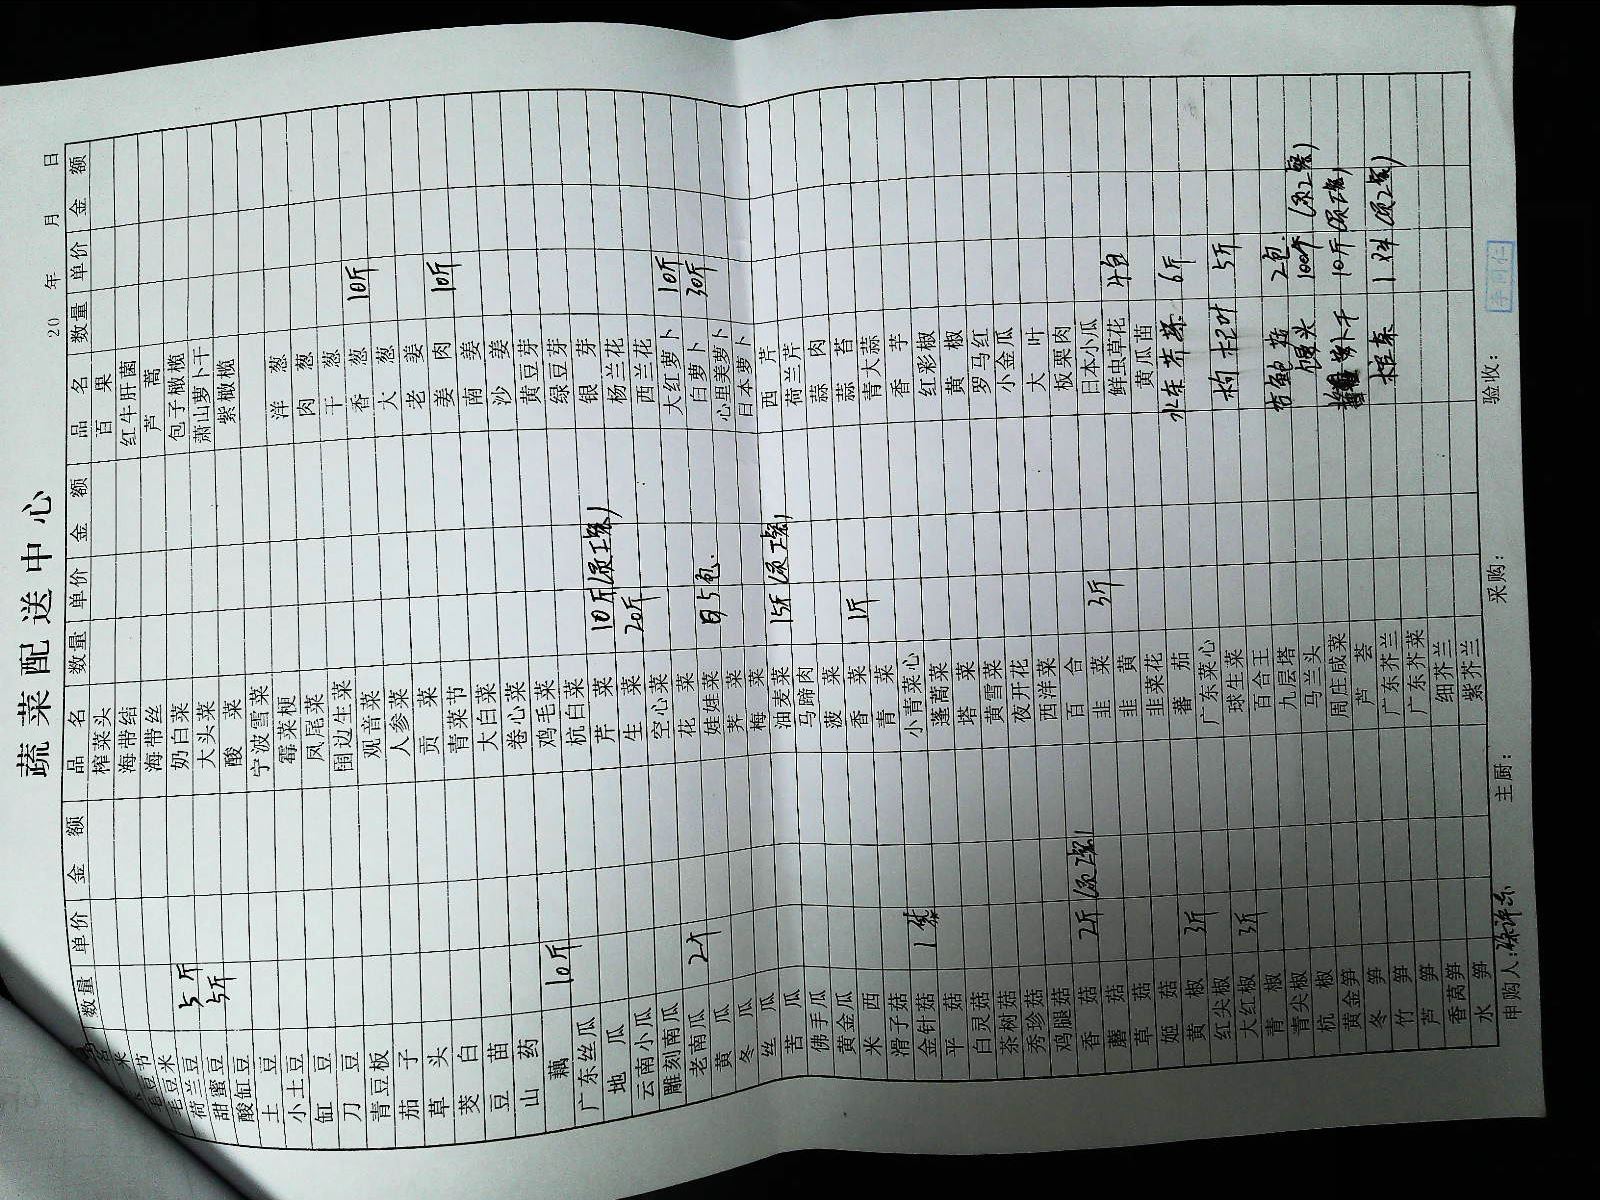 蔬菜配送中心
20 年 月 日
数量 单价 金额
毛豆节
毛豆米
荷兰豆 5斤
甜蜜豆 5斤
酸缸豆
土豆
小土豆
缸豆
刀豆
青豆板
茄子
草头
茭白
豆苗
山药
藕 10斤
广东丝瓜
地瓜
云南小瓜
雕刻南瓜
老南瓜 2个
黄瓜
冬瓜
丝瓜
苦瓜
佛手瓜
黄金瓜
米西
滑子菇
金针菇 1袋
平菇
白灵菇
茶树菇
秀珍菇
鸡腿菇
香菇 2斤
蘑菇
草菇
姬菇
黄椒 3斤
红尖椒
大红椒 3斤
青椒
青尖椒
杭椒
黄金笋
冬笋
竹笋
芦笋
香莴笋
水笋
品名 数量 单价 金额
榨菜头
海带结
海带丝
奶白菜
大头菜
酸菜
宁波雪菜
霉菜梗
凤尾菜
围边生菜
观音菜
人参菜
贡菜
青菜节
大白菜
卷心菜
鸡毛菜
杭白菜
芹菜 10斤
生菜 20斤
空心菜
花菜
娃娃菜 5包
荠菜
梅菜
油麦菜 15斤
马蹄肉
菠菜
香菜 1斤
青菜
小青菜心
蓬蒿菜
塔菜
黄雪菜
夜开花
西洋菜
百合
韭菜 3斤
韭黄
韭菜花
蕃茄
广东菜心
球生菜
百合王
九层塔
马兰头
周庄咸菜
芦荟
广东芥兰
广东芥菜
细芥兰
紫芥兰
品名 数量 单价 金额
百果
红牛肝菌
芦蒿
包子橄榄
萧山萝卜干
紫橄榄
洋葱
肉葱
干葱
香葱 10斤
大葱
老姜
姜肉 10斤
南姜
沙姜
黄豆芽
绿豆芽
银芽
杨兰花
西兰花
大红萝卜 10斤
白萝卜 30斤
心里美萝卜
日本萝卜
西芹
荷兰芹
蒜肉
蒜苔
青大蒜
香芋
红彩椒
黄椒
罗马红
小金瓜
大叶
板栗肉
日本小瓜
鲜虫草花 4包
黄瓜苗
水东芥菜 6斤
枸杞叶 5斤
杏鲍菇 2包
馒头 100个
萝卜干 10斤
申购人: 主厨: 采购: 验收: